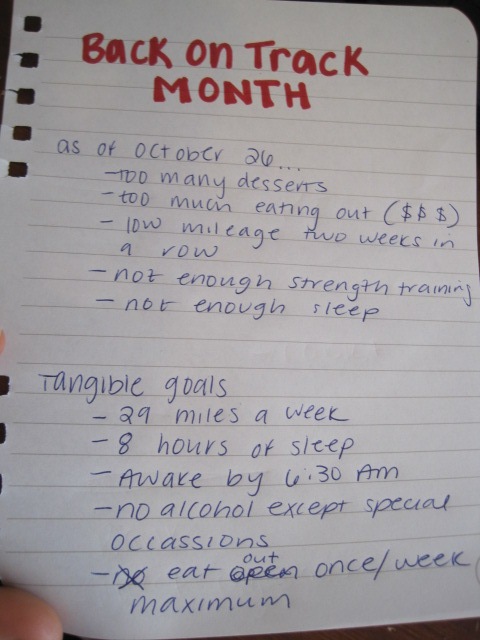 Back on Track
MONTH
as of October 26...
-too many desserts
-too much eating out ($$$)
- low mileage two weeks in
a row
- not enough strength training
- not enough sleep
Tangible goals
- 29 miles a week
- 8 hours of sleep
- Awake by 6:30 AM
- no alcohol except special
occassions
- no eat out once/week
maximum